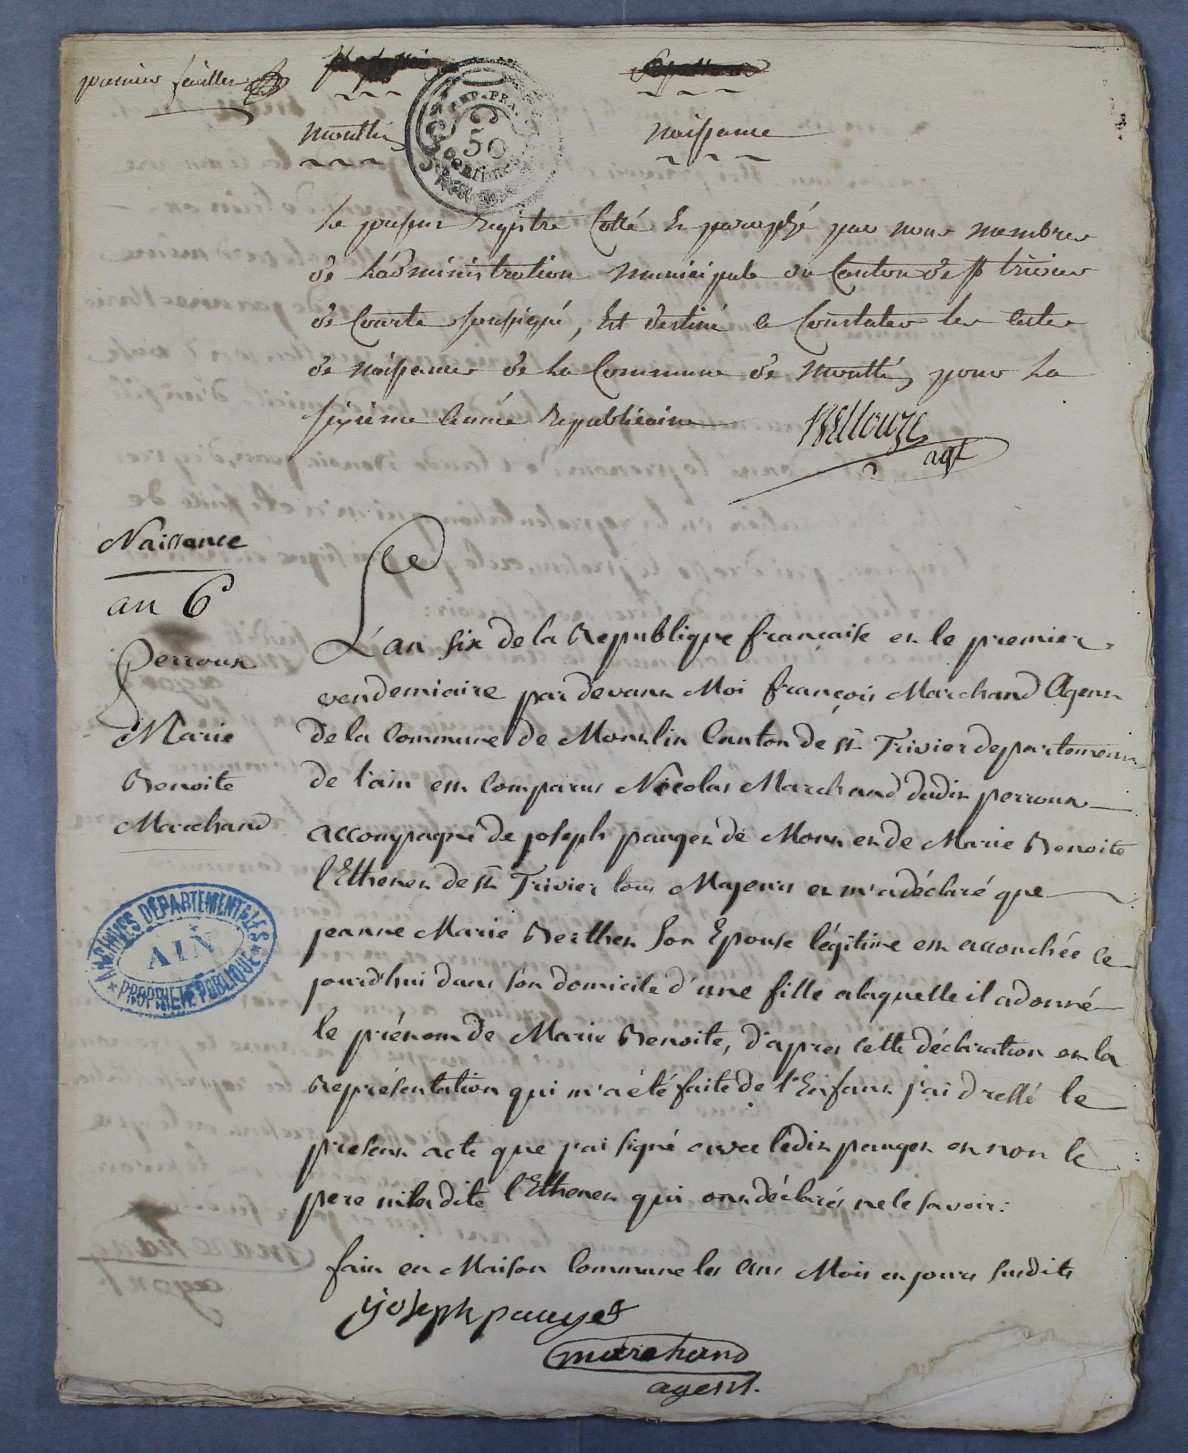 premier feuillet
REP. FRA.
50
centimes
monthis naissance
Le present Registre Cotté et paraphé par nous membres
de L'administration municipale du Canton de st trivier
de Courte soussigné, Est destiné a Constater les actes
de naissances de La Commune de pour La
sixieme année Republicaine
agt
Naissance
an 6e
L'an six de la République française et le premier
Perroux
vendemiaire par devant Moi françois Marchand Agent
Marie
de la Commune de Canton de st. Trivier departement
Benoite
de l'ain est comparut Nicolas Marchand dudit perroux
Marchand
accompagné de joseph pauget de et de Marie Benoite
l'Ethenet de st. Trivier tous Majeurs et m'a déclaré que
jeanne Marie Berthet son Epouse légitime est accouchée ce
jourd'hui dans son domicile d'une fille a laquelle il a donné
le prénom de Marie Benoite, d'apres cette déclaration et la
Représentation qui m'a été faite de l'Enfant j'ai dressé le
present acte que j'ai signé avec ledit pauget et non le
pere ni ladite l'Ethenet qui ont déclarés ne le savoir:
fait en Maison Commune les ans Mois et jours susdits
ARCHIVES DÉPARTEMENTALES
AIN
PROPRIÉTÉ PUBLIQUE
joseph pauget
marchand
agent.